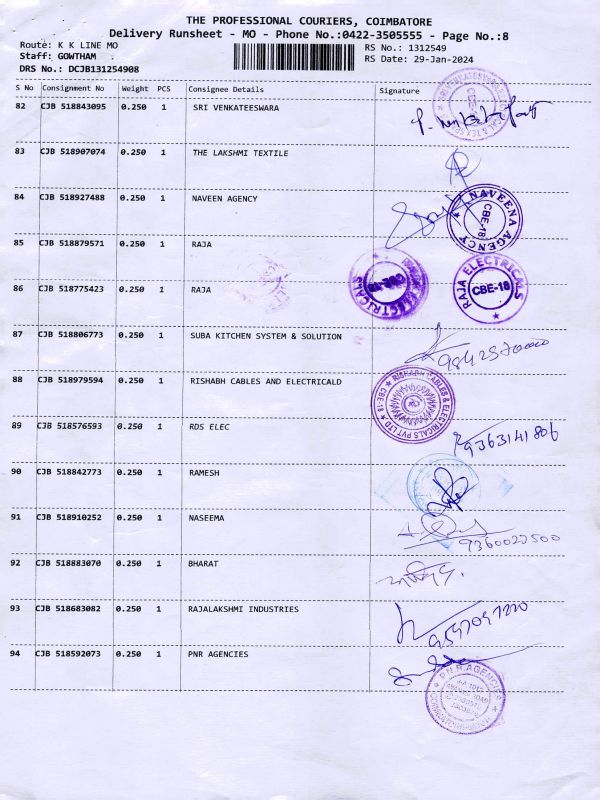 THE PROFESSIONAL COURIERS, COIMBATORE
Delivery Runsheet - MO - Phone No.:0422-3505555 - Page No.:8
Route: K K LINE MO
Staff: GOWTHAM
DRS No.: DCJB131254908
RS No.: 1312549
RS Date: 29-Jan-2024
S No Consignment No Weight PCS Consignee Details Signature
82 CJB 518843095 0.250 1 SRI VENKATEESWARA
83 CJB 518907074 0.250 1 THE LAKSHMI TEXTILE
84 CJB 518927488 0.250 1 NAVEEN AGENCY
NAVEENA AGENCY CBE-18
85 CJB 518879571 0.250 1 RAJA
86 CJB 518775423 0.250 1 RAJA
RAJA ELECTRICALS CBE-18
87 CJB 518806773 0.250 1 SUBA KITCHEN SYSTEM & SOLUTION
88 CJB 518979594 0.250 1 RISHABH CABLES AND ELECTRICALD
RISHABH CABLES & ELECTRICALS PVT LTD CBE-18
89 CJB 518576593 0.250 1 RDS ELEC 9363141806
90 CJB 518842773 0.250 1 RAMESH
91 CJB 518910252 0.250 1 NASEEMA
92 CJB 518883070 0.250 1 BHARAT
93 CJB 518683082 0.250 1 RAJALAKSHMI INDUSTRIES
94 CJB 518592073 0.250 1 PNR AGENCIES
P.N.R. AGENCIES